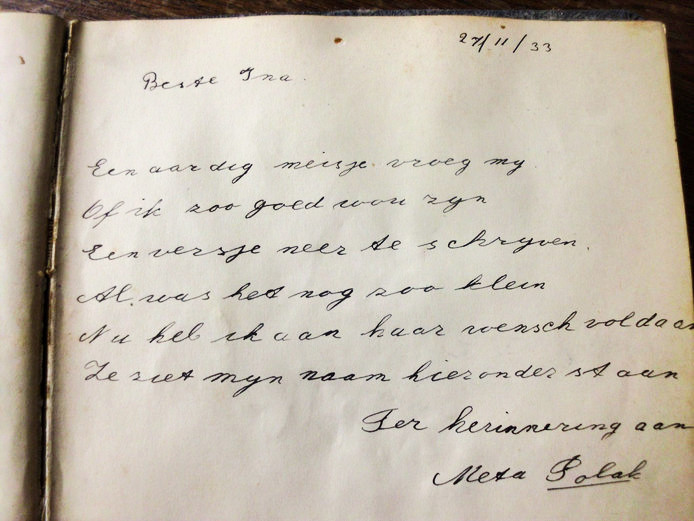 27/11/33
Beste Ina.
Een aardig meisje vroeg my
Of ik zoo goed wou zyn
Een versje neer te schryven.
Al was het nog zoo klein
Nu heb ik aan haar wensch voldaan
Ze ziet myn naam hieronder staan
Ter herinnering aan
Meta Polak